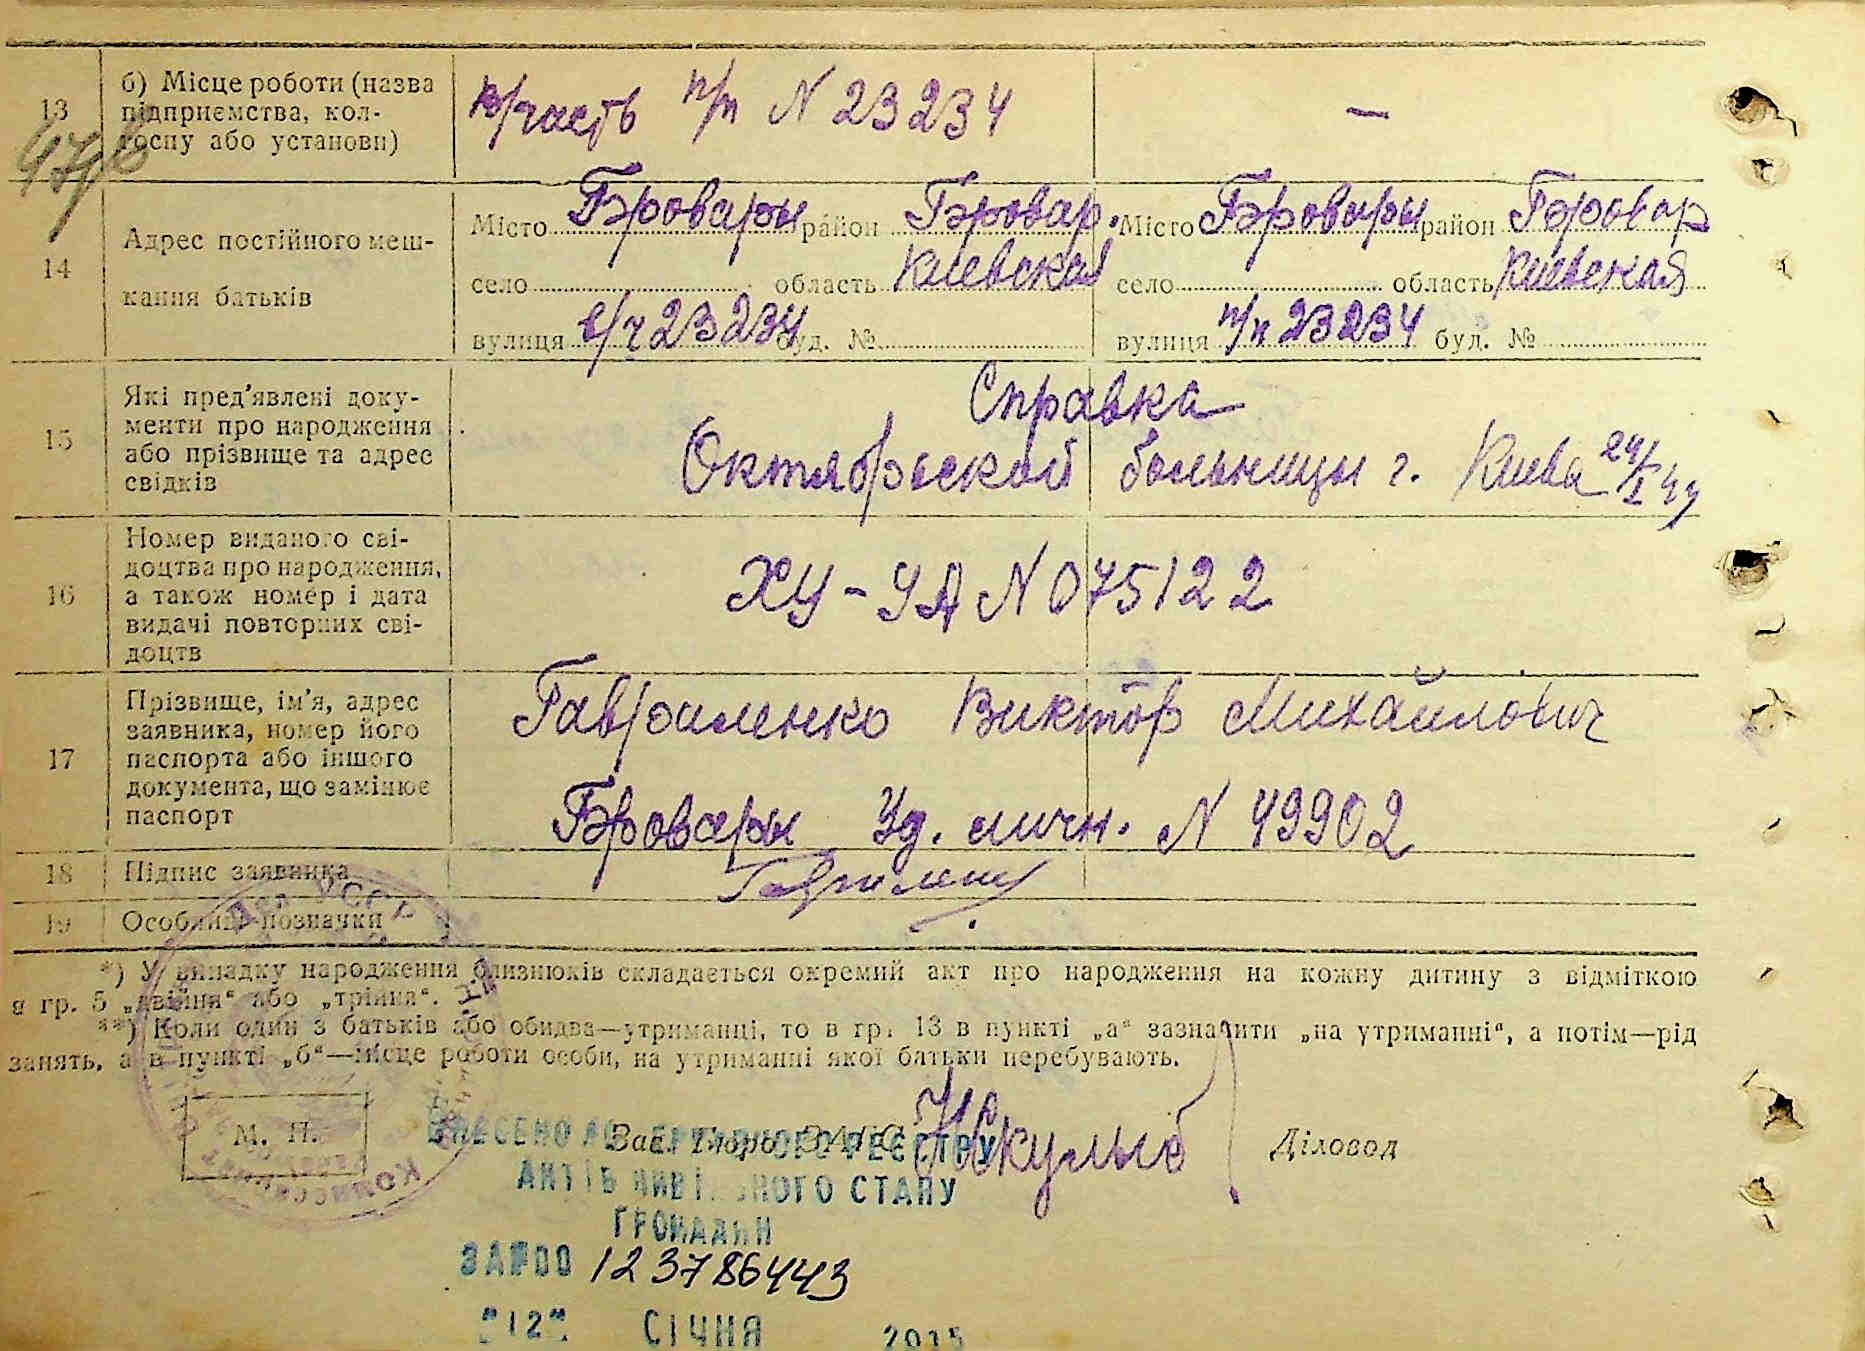 13
б) Місце роботи (назва
підприємства, кол-
госпу або установи)
в/часть п/п N 23234
—
14
Адрес постійного меш-
кання батьків
Місто Бровары район Бровар.
село область Киевская
вулиця в/ч 23234 буд. №
Місто Бровары район Бровар
село область Киевская
вулиця п/п 23234 буд. №
15
Які пред'явлені доку-
менти про народження
або прізвище та адрес
свідків
Справка
Октябрьской больницы г. Киева 24/I
16
Номер виданого сві-
доцтва про народження,
а також номер і дата
видачі повторних сві-
доцтв
ХУ-УА N 075122
17
Прізвище, ім'я, адрес
заявника, номер його
паспорта або іншого
документа, що замінює
паспорт
Гавриленко Виктор Михайлович
Бровары Уд. личн. N 49902
18
Підпис заявника
19
Особливі позначки
*) У випадку народження близнюків складається окремий акт про народження на кожну дитину з відміткою
в гр. 5 „двійня“ або „трійня“.
**) Коли один з батьків або обидва—утриманці, то в гр. 13 в пункті „а“ зазначити „на утриманні“, а потім—рід
занять, а в пункті „б“—місце роботи особи, на утриманні якої батьки перебувають.
М. П.
Зав. Бюро ЗАГС
Діловод
ВНЕСЕНО ДО ДЕРЖАВНОГО РЕЄСТРУ
АКТІВ ЦИВІЛЬНОГО СТАНУ
ГРОМАДЯН
ЗА №00 123786443
"12" СІЧНЯ 2015